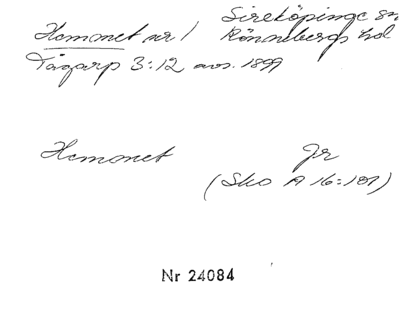 Hemmet nr 1 Sireköpinge sn,
Rönnebergs hd
Tågarp 3:12 avs. 1899
Hemmet Jr
(Sko A 16:181)
Nr 24084